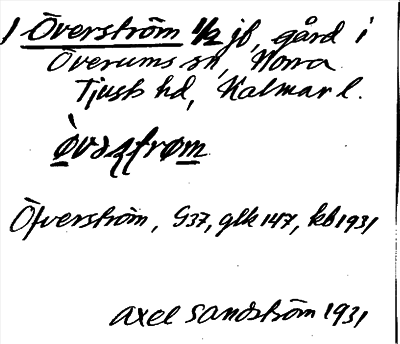 1 Överström 1/2 jb, gård i
Överums sn, Norra
Tjusts hd, Kalmar l.
Öfverström, G37, glk 147, kb 1931
Axel Sandström 1931